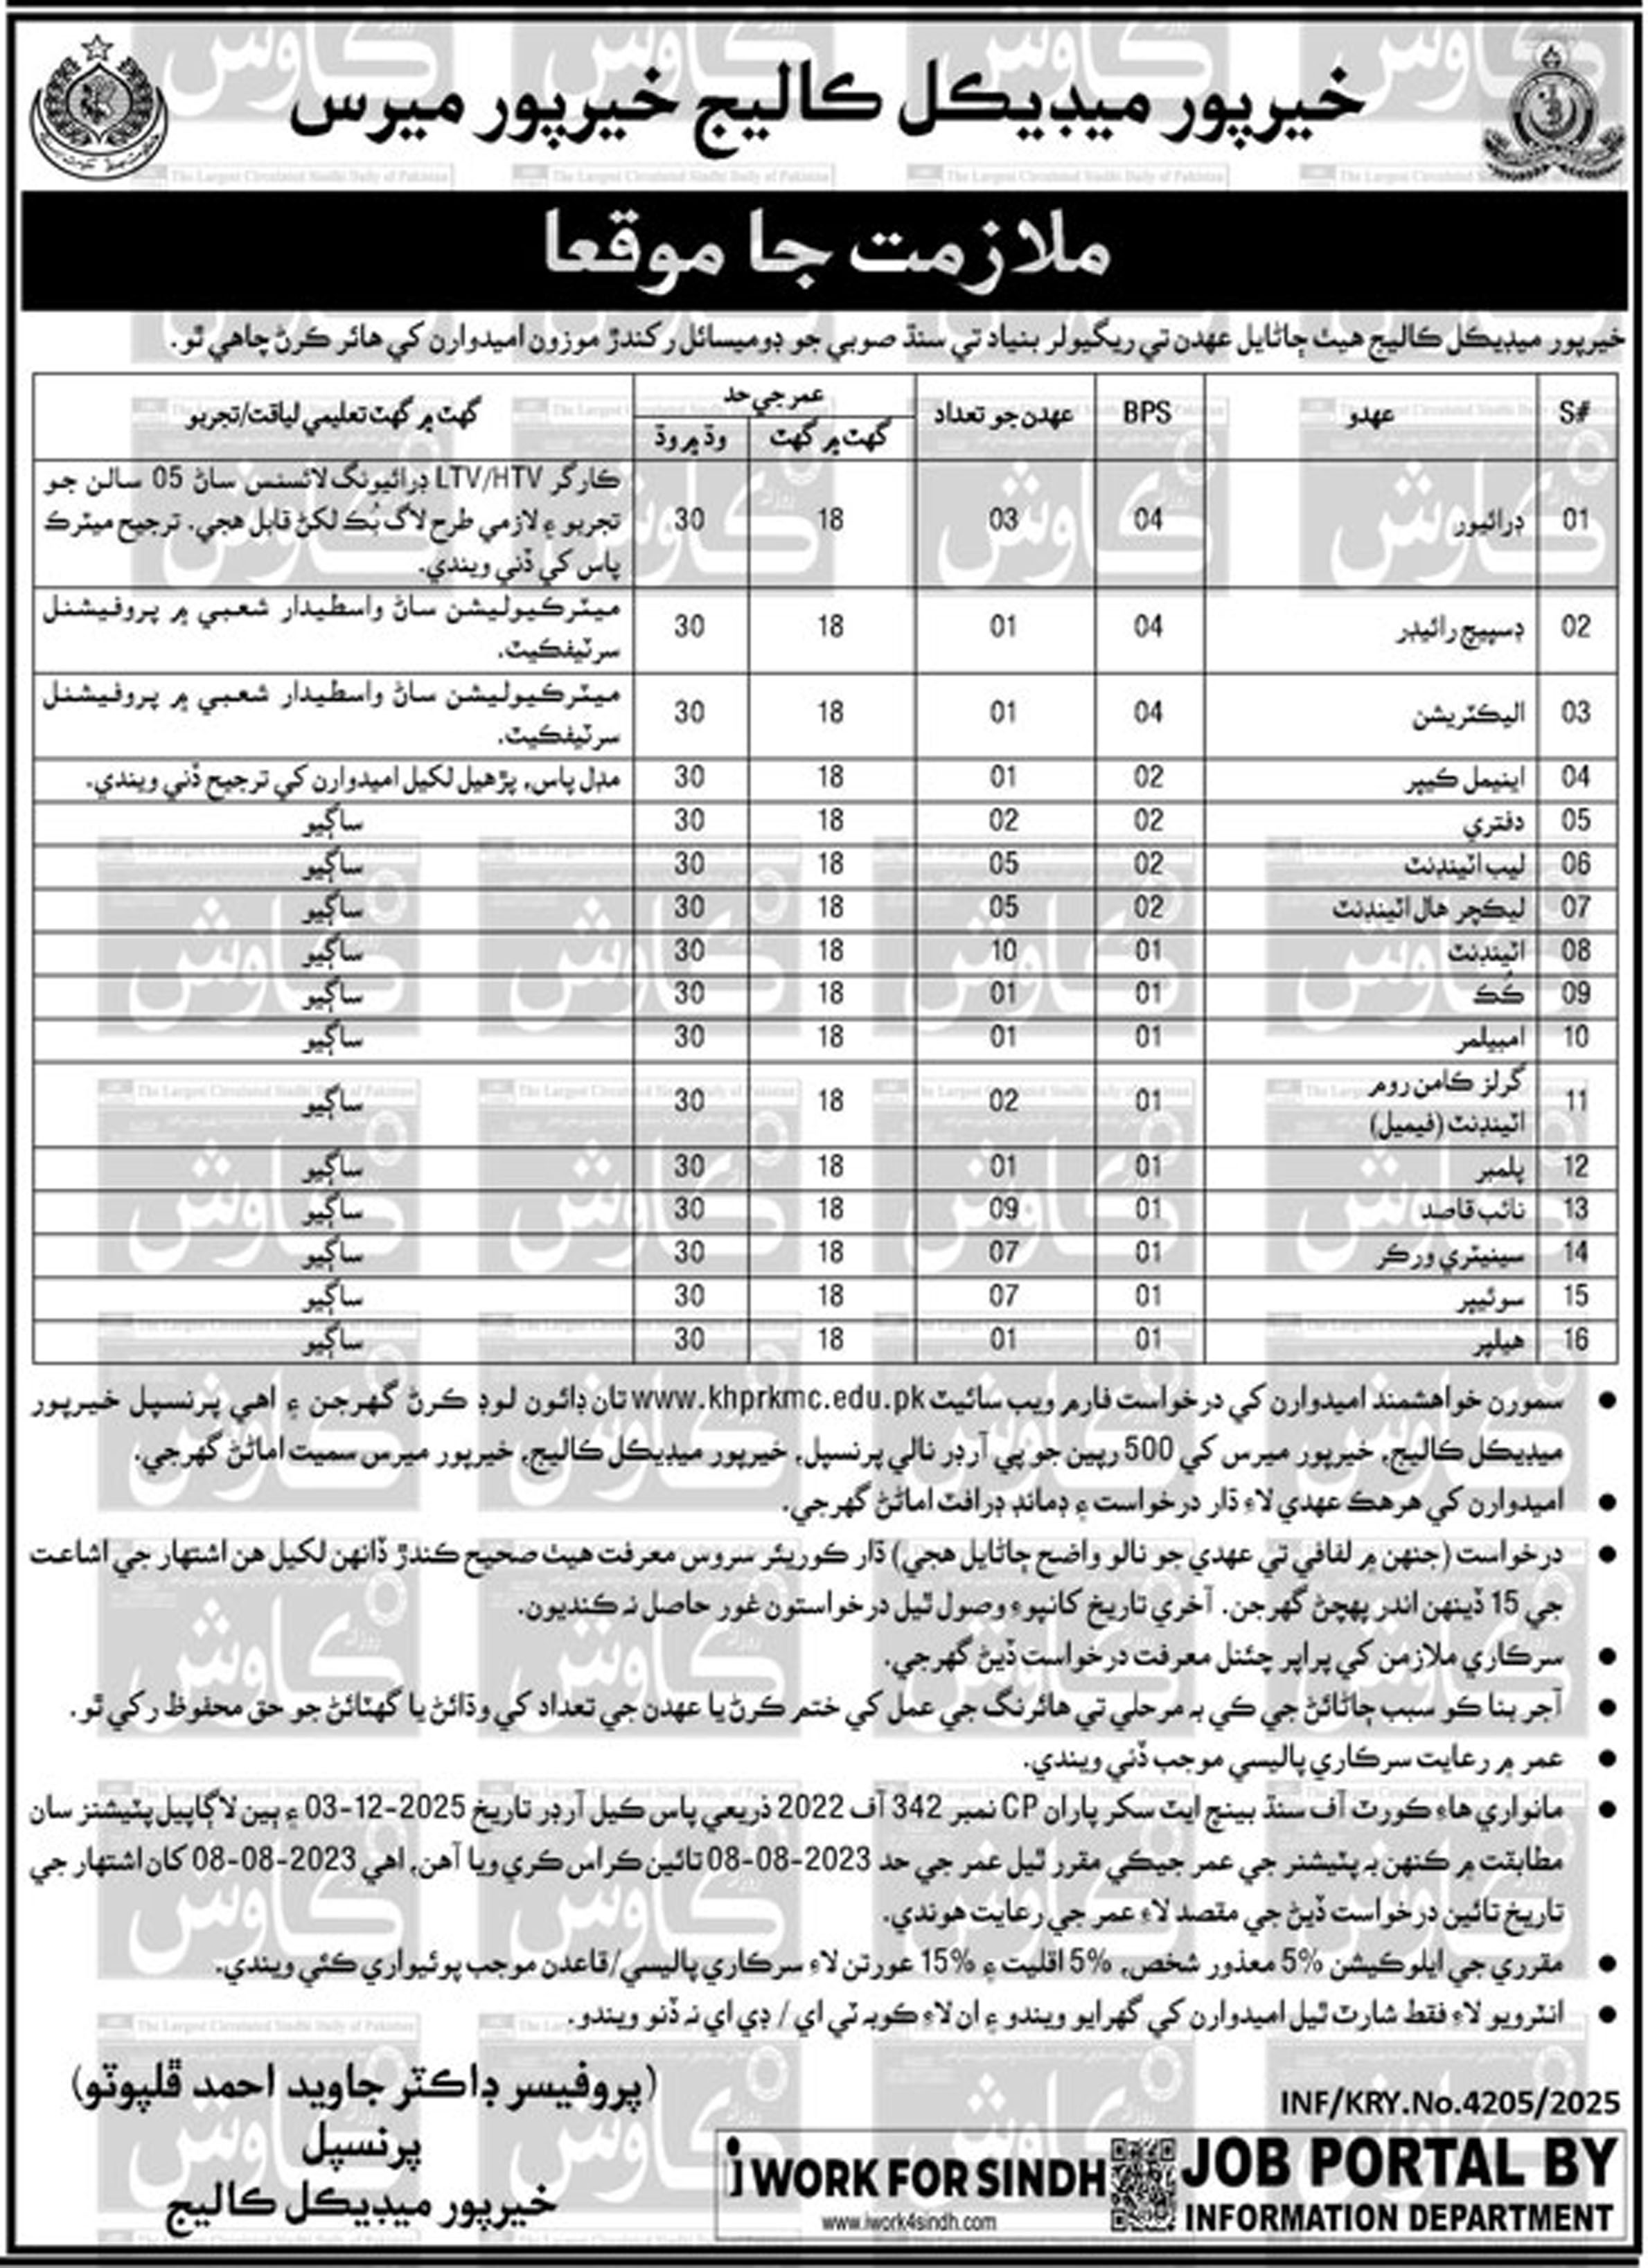 خيرپور ميڊيڪل ڪاليج خيرپور ميرس
ملازمت جا موقعا
خيرپور ميڊيڪل ڪاليج هيٺ ڄاڻايل عهدن تي ريگيولر بنياد تي سنڌ صوبي جو ڊوميسائل رکندڙ موزون اميدوارن کي هائر ڪرڻ چاهي ٿو.
S# عهدو BPS عهدن جو تعداد عمر جي حد گهٽ ۾ گهٽ تعليمي لياقت/تجربو
گهٽ ۾ گهٽ وڌ ۾ وڌ
01 ڊرائيور 04 03 18 30 ڪارگر LTV/HTV ڊرائيونگ لائسنس ساڻ 05 سالن جو
تجربو ۽ لازمي طرح لاگ بُڪ لکڻ قابل هجي. ترجيح ميٽرڪ
پاس کي ڏني ويندي.
02 ڊسپيچ رائيڊر 04 01 18 30 ميٽرڪيوليشن ساڻ واسطيدار شعبي ۾ پروفيشنل
سرٽيفڪيٽ.
03 اليڪٽريشن 04 01 18 30 ميٽرڪيوليشن ساڻ واسطيدار شعبي ۾ پروفيشنل
سرٽيفڪيٽ.
04 اينيمل ڪيپر 02 01 18 30 مڊل پاس، پڙهيل لکيل اميدوارن کي ترجيح ڏني ويندي.
05 دفتري 02 02 18 30 ساڳيو
06 ليب اٽينڊنٽ 02 05 18 30 ساڳيو
07 ليڪچر هال اٽينڊنٽ 02 05 18 30 ساڳيو
08 اٽينڊنٽ 01 10 18 30 ساڳيو
09 ڪُڪ 01 01 18 30 ساڳيو
10 امبيلمر 01 01 18 30 ساڳيو
11 گرلز ڪامن روم 01 02 18 30 ساڳيو
اٽينڊنٽ (فيميل)
12 پلمبر 01 01 18 30 ساڳيو
13 نائب قاصد 01 09 18 30 ساڳيو
14 سينيٽري ورڪر 01 07 18 30 ساڳيو
15 سوئيپر 01 07 18 30 ساڳيو
16 هيلپر 01 01 18 30 ساڳيو
● سمورن خواهشمند اميدوارن کي درخواست فارم ويب سائيٽ www.khprkmc.edu.pk تان ڊائون لوڊ ڪرڻ گهرجن ۽ اهي پرنسپل خيرپور
ميڊيڪل ڪاليج، خيرپور ميرس کي 500 رپين جو پي آرڊر نالي پرنسپل، خيرپور ميڊيڪل ڪاليج، خيرپور ميرس سميت اماڻڻ گهرجي.
● اميدوارن کي هر هڪ عهدي لاءِ ڌار درخواست ۽ ڊمانڊ ڊرافٽ اماڻڻ گهرجي.
● درخواست (جنهن ۾ لفافي تي عهدي جو نالو واضح ڄاڻايل هجي) ڌار ڪوريئر سروس معرفت هيٺ صحيح ڪندڙ ڏانهن لکيل هن اشتهار جي اشاعت
جي 15 ڏينهن اندر پهچڻ گهرجن. آخري تاريخ کانپوءِ وصول ٿيل درخواستون غور حاصل نه ڪنديون.
● سرڪاري ملازمن کي پراپر چئنل معرفت درخواست ڏيڻ گهرجي.
● آجر بنا ڪو سبب ڄاڻائڻ جي ڪي به مرحلي تي هائرنگ جي عمل کي ختم ڪرڻ يا عهدن جي تعداد کي وڌائڻ يا گهٽائڻ جو حق محفوظ رکي ٿو.
● عمر ۾ رعايت سرڪاري پاليسي موجب ڏني ويندي.
● مانواري هاءِ ڪورٽ آف سنڌ بينچ ايٽ سکر پاران CP نمبر 342 آف 2022 ذريعي پاس ڪيل آرڊر تاريخ 2025-12-03 ۽ ٻين لاڳاپيل پٽيشنز سان
مطابقت ۾ ڪنهن به پٽيشنر جي عمر جيڪي مقرر ٿيل عمر جي حد 2023-08-08 تائين ڪراس ڪري ويا آهن، اهي 2023-08-08 کان اشتهار جي
تاريخ تائين درخواست ڏيڻ جي مقصد لاءِ عمر جي رعايت هوندي.
● مقرري جي ايلوڪيشن 5% معذور شخص، 5% اقليت ۽ 15% عورتن لاءِ سرڪاري پاليسي/قاعدن موجب پوئيواري ڪئي ويندي.
● انٽرويو لاءِ فقط شارٽ ٿيل اميدوارن کي گهرايو ويندو ۽ ان لاءِ ڪو به ٽي اي / ڊي اي نه ڏنو ويندو.
(پروفيسر ڊاڪٽر جاويد احمد ڦلپوٽو)
پرنسپل
خيرپور ميڊيڪل ڪاليج
INF/KRY.No.4205/2025
i WORK FOR SINDH
www.iwork4sindh.com
JOB PORTAL BY
INFORMATION DEPARTMENT